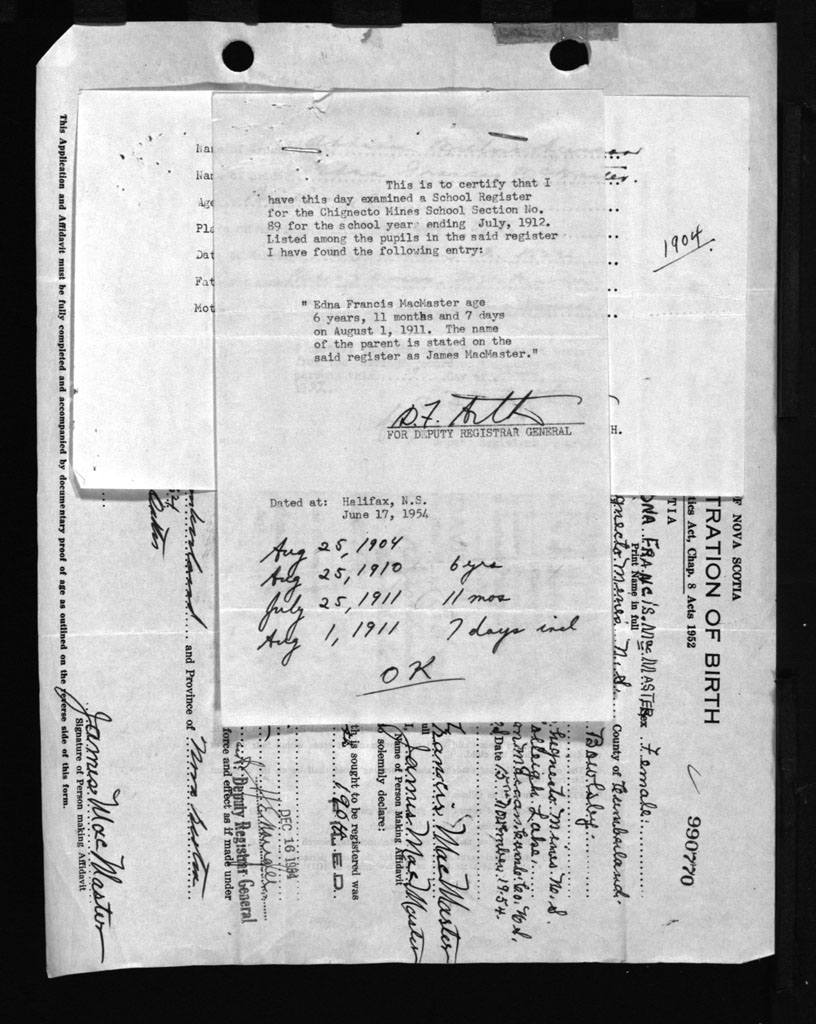 Nam
Nam
Age
Pla
Dat
Fat
Mot
This is to certify that I
have this day examined a School Register
for the Chignecto Mines School Section No.
89 for the school year ending July, 1912.
Listed among the pupils in the said register
I have found the following entry:
" Edna Francis MacMaster age
6 years, 11 months and 7 days
on August 1, 1911. The name
of the parent is stated on the
said register as James MacMaster."
FOR DEPUTY REGISTRAR GENERAL
H.
Dated at: Halifax, N.S.
June 17, 1954
Aug 25, 1904
Aug 25, 1910 6 yrs
July 25, 1911 11 mos
Aug 1, 1911 7 days incl
OK
1904.
F NOVA SCOTIA
tics Act, Chap. 8 Acts 1952
TRATION OF BIRTH
990770
TIA
DNA FRANCIS MacMASTER Sex Female
Print Name in full
gnecto Mines N.S. County of Cumberland
Bowlsby
hignecto Mines N.S.
Leigh Lake
Date 15th November 1954.
Francis MacMaster
ull
I, James MacMaster
Name of Person Making Affidavit
o solemnly declare:
th is sought to be registered was
E.D.
DEC 16 1954
Deputy Registrar General
force and effect as if made under
and Province of Nova Scotia
James MacMaster
Signature of Person making Affidavit
This Application and Affidavit must be fully completed and accompanied by documentary proof of age as outlined on the reverse side of this form.